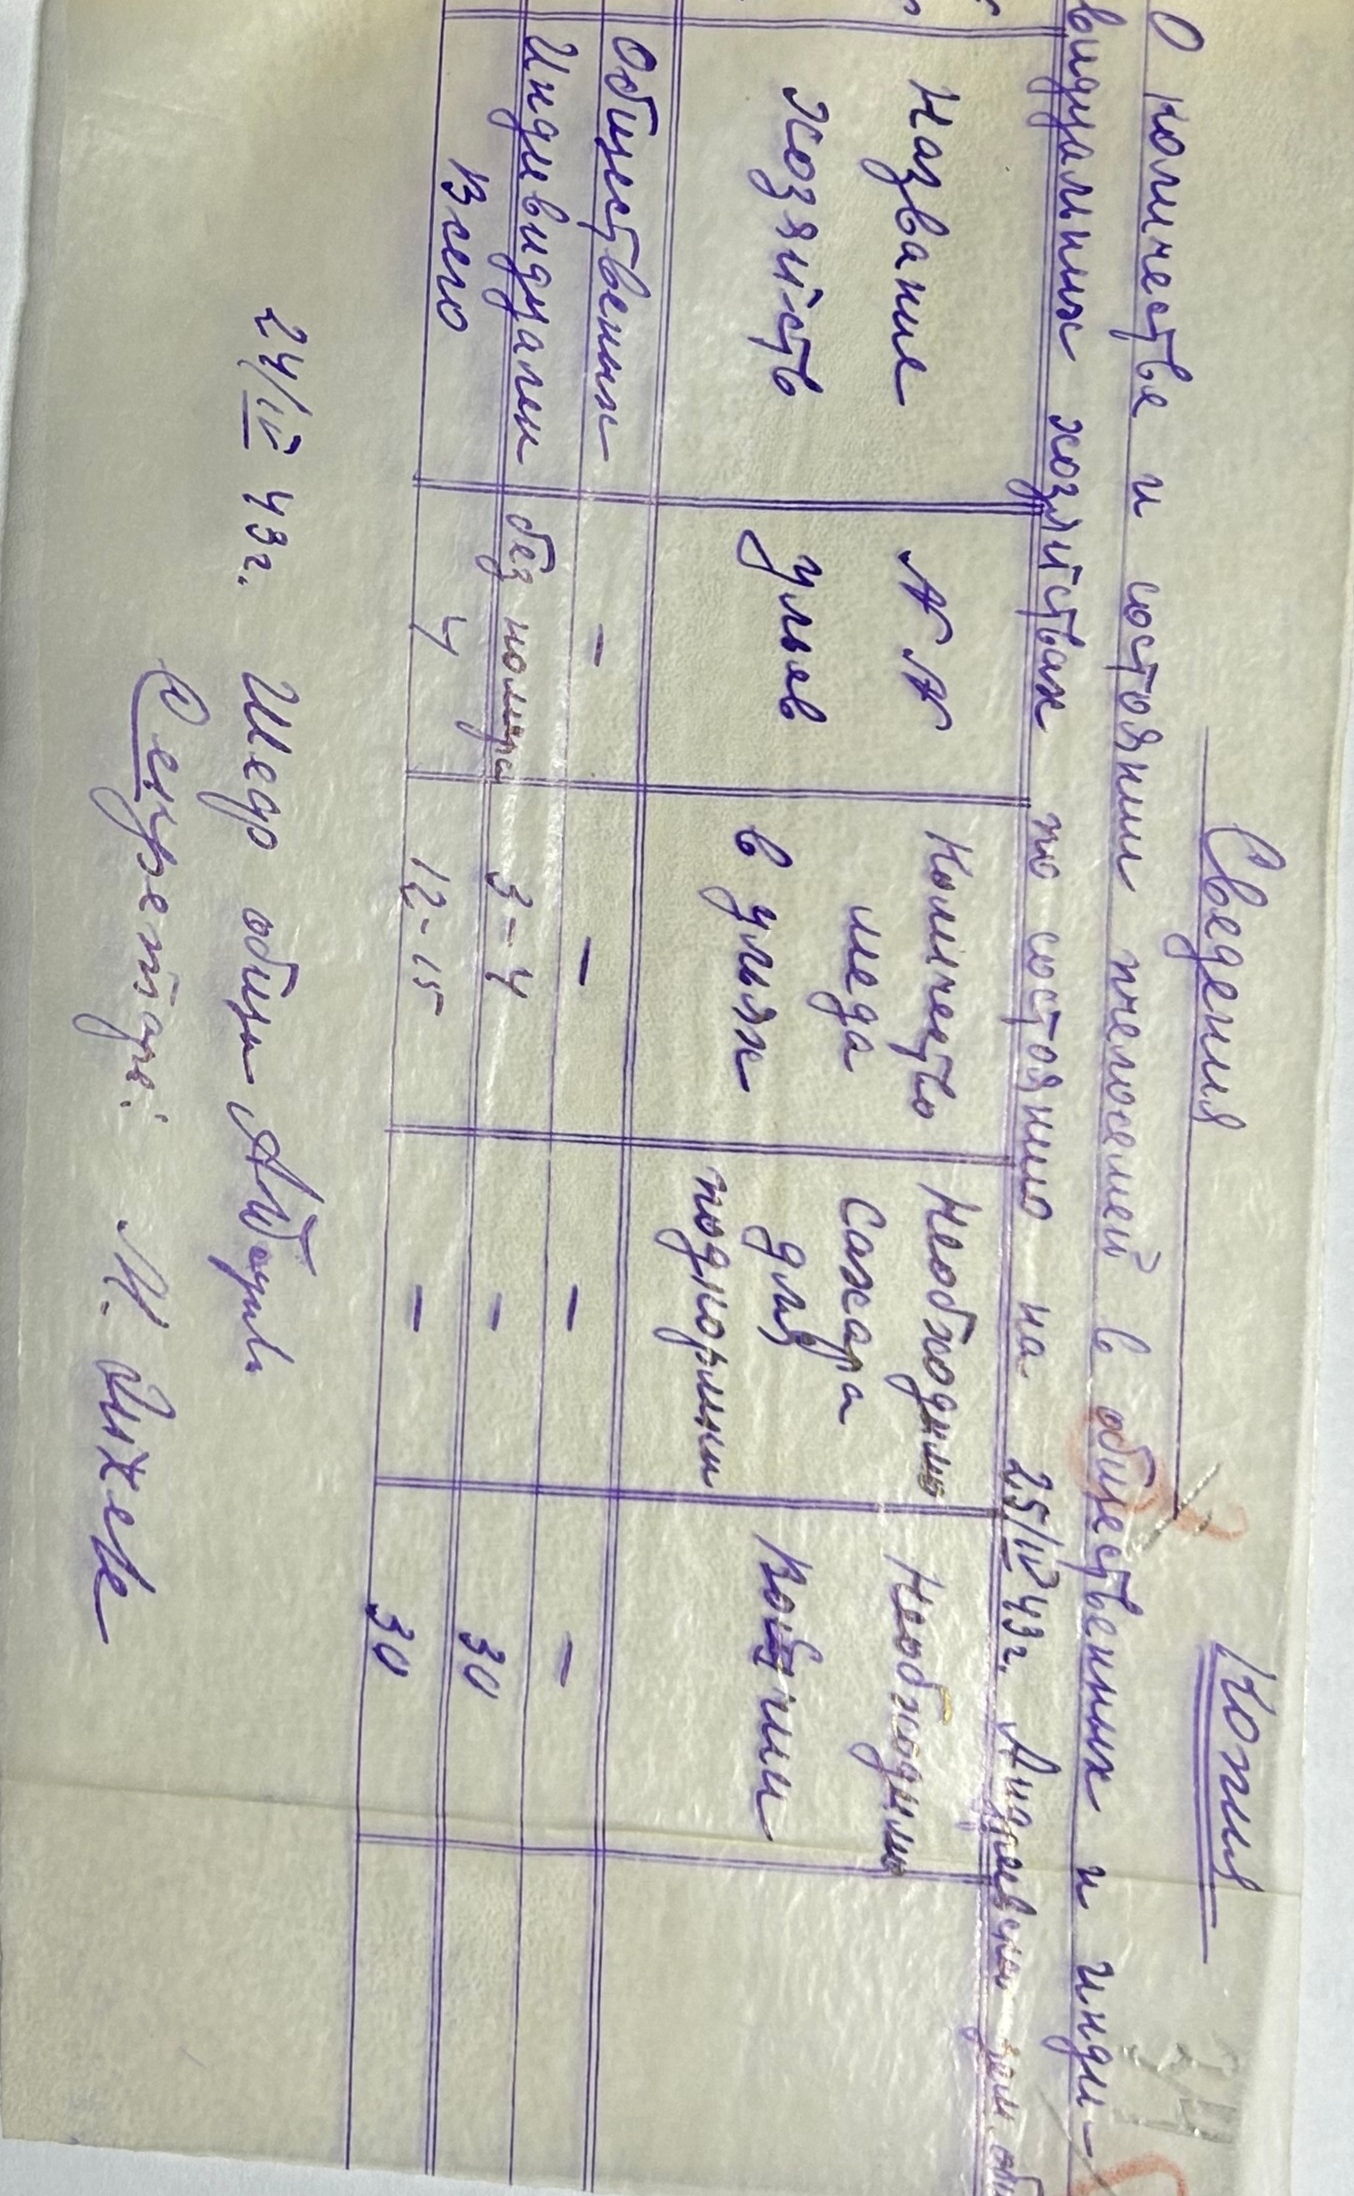 Копия
Сведения
О количестве и состоянии пчелосемей в общественных и инди-
видуальных хозяйствах по состоянию на 25/IV 43г. Андреевской зем. общ
Название хозяйств | №№ ульев | Количество меда в ульях | Необходимо сахара для подкормки | Необходимо вощины
Общественных | - | - | - | -
Индивидуален | без номера | 3-4 | - | 30
Всего | 4 | 12-15 | - | 30
24/IV 43г. Шеф общины
Секретарь: И.